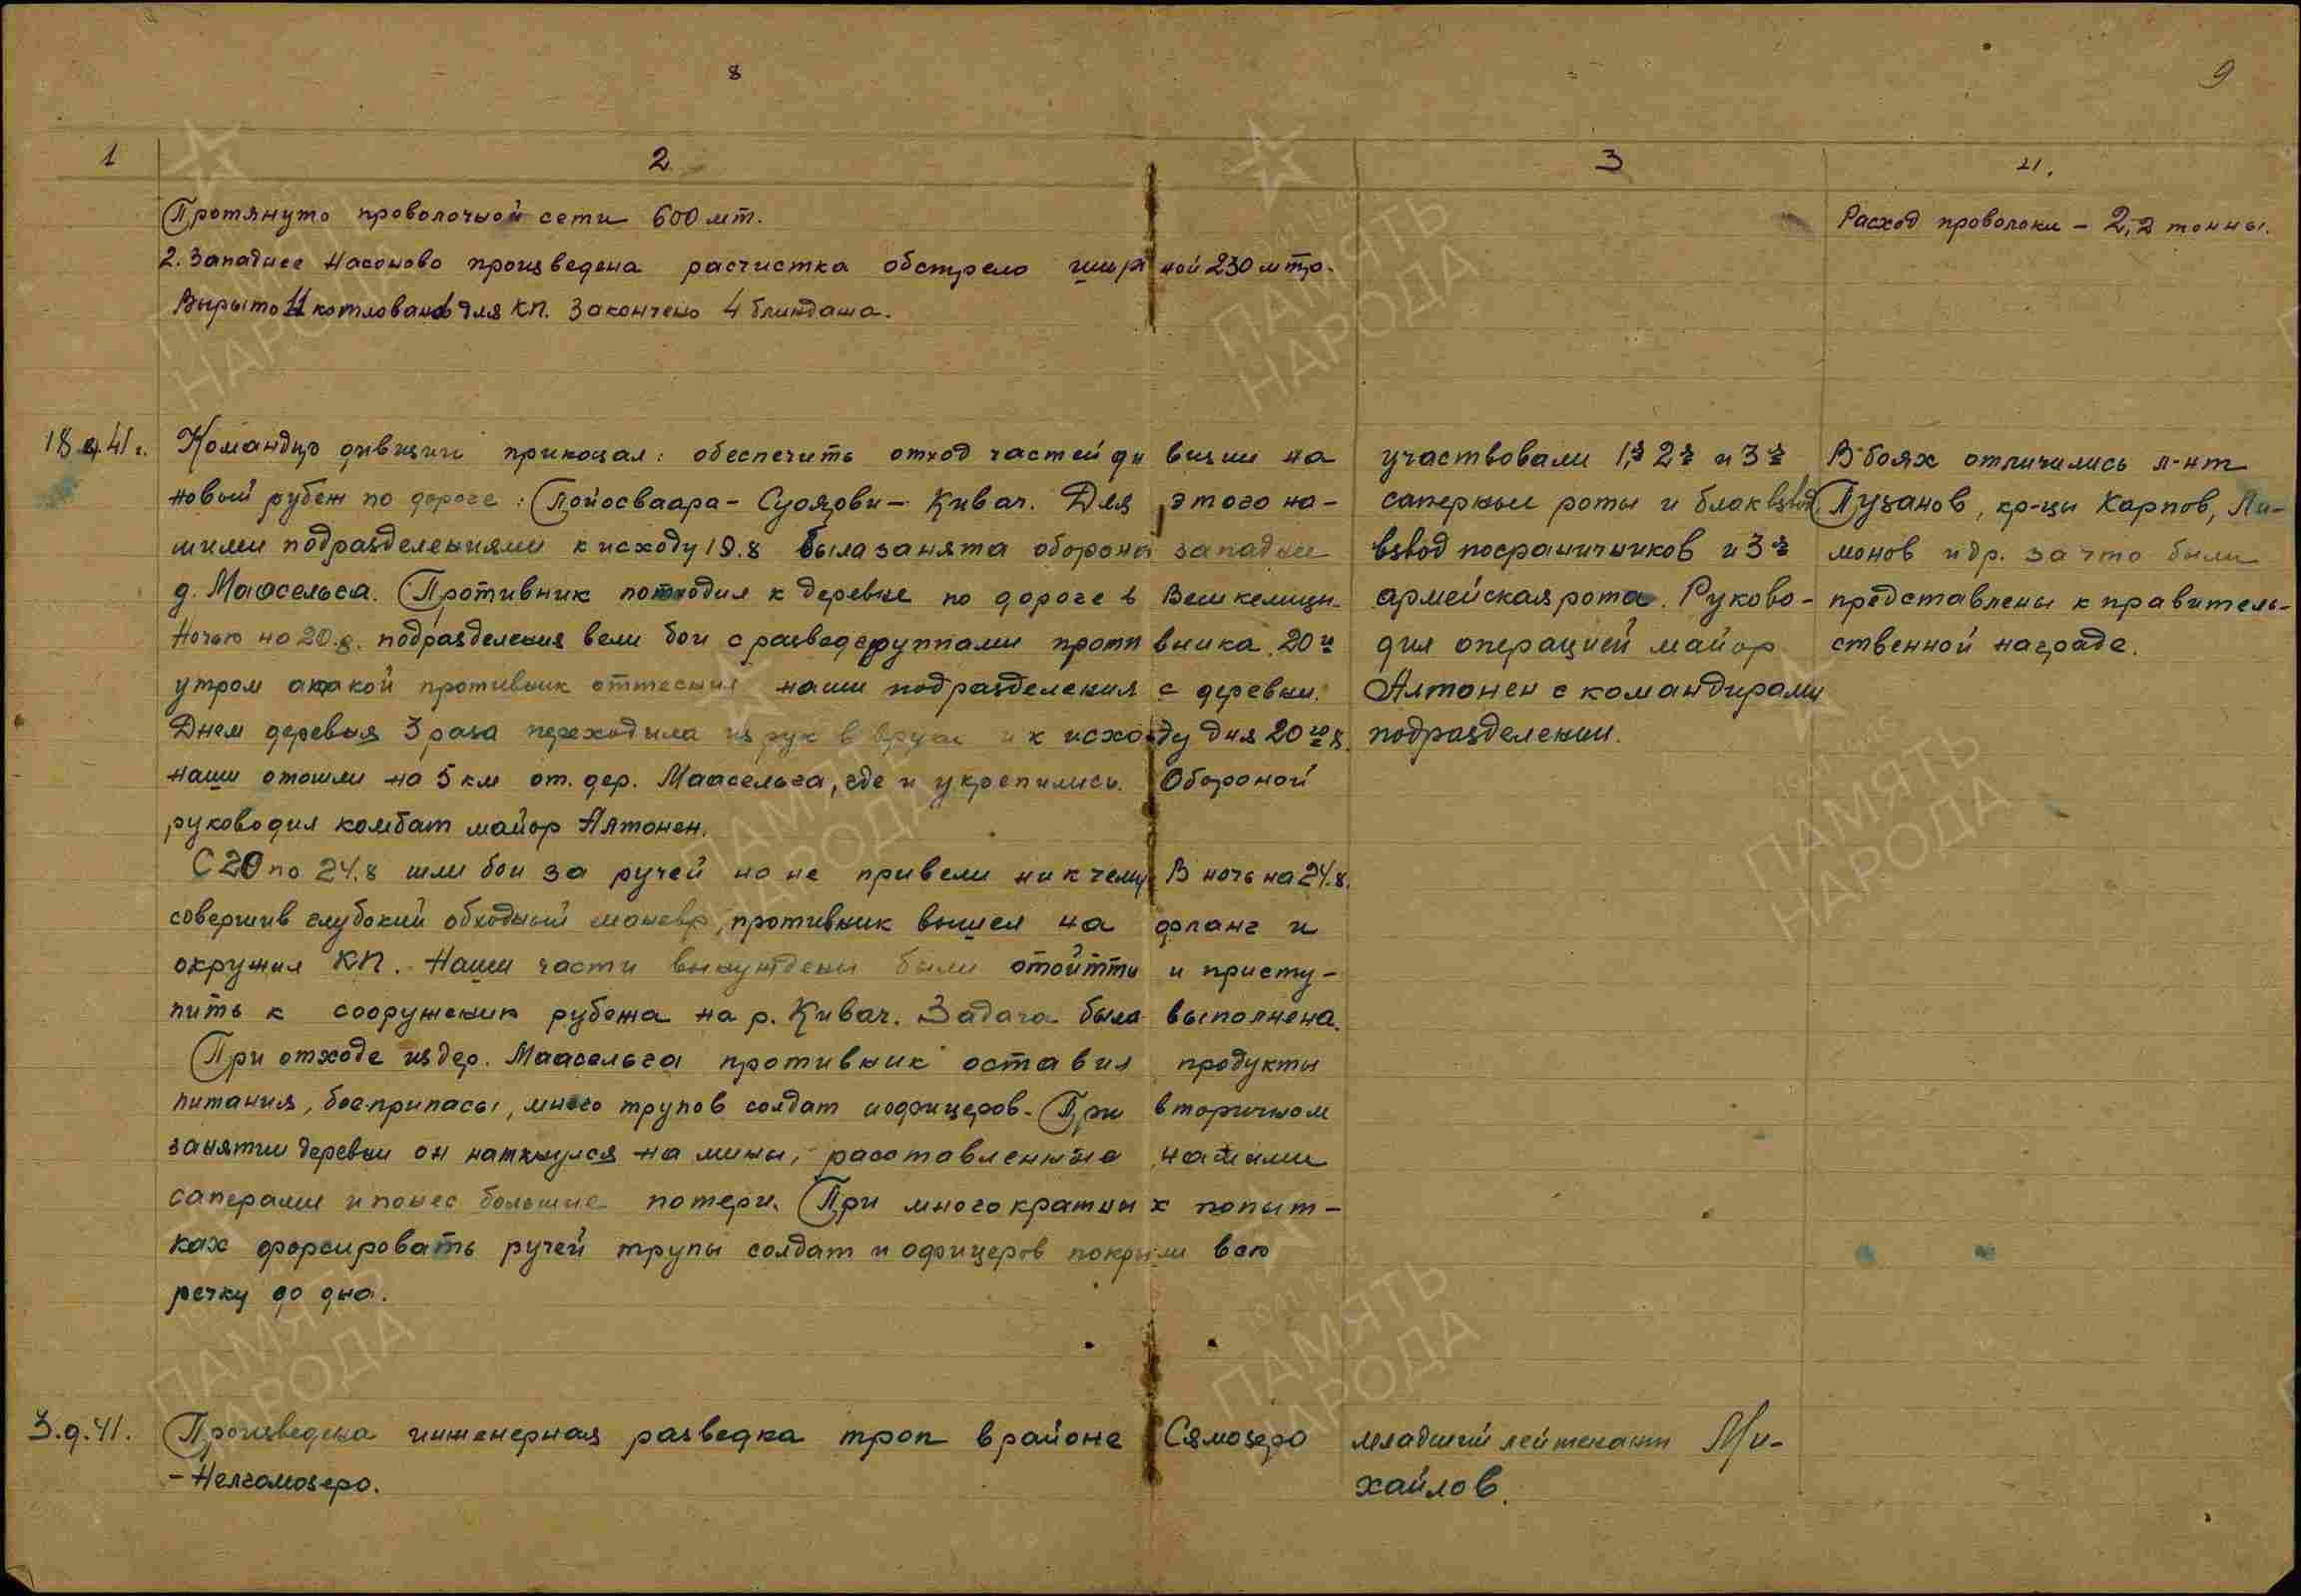 8
9
1
2
3
4.
Протянуто проволочной сети 600 мт.
2. Западнее Насоново произведена расчистка обстрела шириной 230 мтр.
Вырыто 11 котлованов для КП. Закончено 4 блиндажа.
Расход проволоки – 2,2 тонны.
18.8.41 г.
Командир дивизии приказал: обеспечить отход частей дивизии на
новый рубеж по дороге: Пойосваара – Суоярви – Кивач. Для этого на-
шими подразделениями к исходу 19.8 была занята оборона западнее
д. Маасельга. Противник подходил к деревне по дороге в Вешкелицы.
Ночью на 20.8. подразделения вели бои с разведгруппами противника. 20го
утром атакой противник оттеснил наши подразделения с деревни.
Днем деревня 3 раза переходила из рук в руки и к исходу дня 20го 8.
наши отошли на 5 км от. дер. Маасельга, где и укрепились. Обороной
руководил комбат майор Алтонен.
С 20 по 24.8 шли бои за ручей но не привели ни к чему. В ночь на 24.8.
совершив глубокий обходный маневр, противник вышел на фланг и
окружил КП. Наши части вынуждены были отойтти и присту-
пить к сооружению рубежа на р. Кивач. Задача была выполнена.
При отходе из дер. Маасельга противник оставил продукты
питания, боеприпасы, много трупов солдат и офицеров. При вторичном
занятии деревни он наткнулся на мины, расставленные нашими
саперами и понес большие потери. При многократных попыт-
ках форсировать ручей трупы солдат и офицеров покрыли всю
речку до дна.
участвовали 1я, 2я и 3я
саперные роты и блок взвод,
взвод пограничников и 3я
армейская рота. Руково-
дил операцией майор
Алтонен с командирами
подразделении.
В боях отличились л-нт
Пузанов, кр-цы Карпов, Ли-
монов и др. за что были
представлены к правитель-
ственной награде.
3.9.41.
Произведена инженерная разведка троп в районе Сямозеро
– Нелгомозеро.
младший лейтенант Ми-
хайлов.
ПАМЯТЬ
НАРОДА